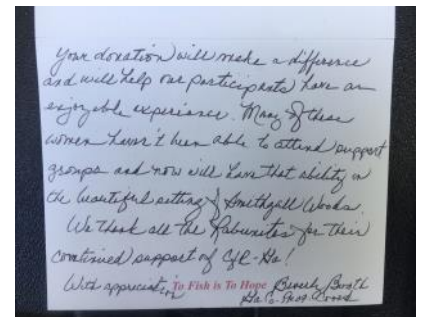 Your donation will make a difference
and will help our participants have an
enjoyable experience. Many of these
women haven't been able to attend support
groups and now will have that ability in
the beautiful setting of Smithgall Woods.
We thank all the Rabunites for their
continued support of CfR-Ga!
With appreciation To Fish is To Hope Beverly Booth
Ga Co-Prog. Coord